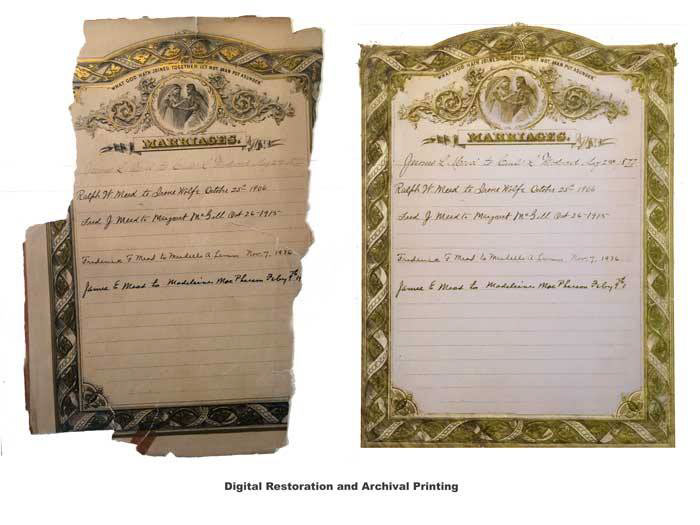 "WHAT GOD HATH JOINED TOGETHER LET NOT MAN PUT ASUNDER"
MARRIAGES.
L. to
Ralph W. Mead to Wolfe October 25th 1906
Fred J. Mead to Margaret McGill Oct 26-1915
T. Mead to A. Nov. 7, 1936
James E Mead to Madeleine MacPherson Feby
"WHAT GOD HATH JOINED TOGETHER LET NOT MAN PUT ASUNDER"
MARRIAGES.
James L. to
Ralph W. Mead to Wolfe October 25th 1906
Fred J. Mead to Margaret McGill Oct 26-1915
T. Mead to A. Nov. 7, 1936
James E Mead to Madeleine MacPherson Feby
Digital Restoration and Archival Printing